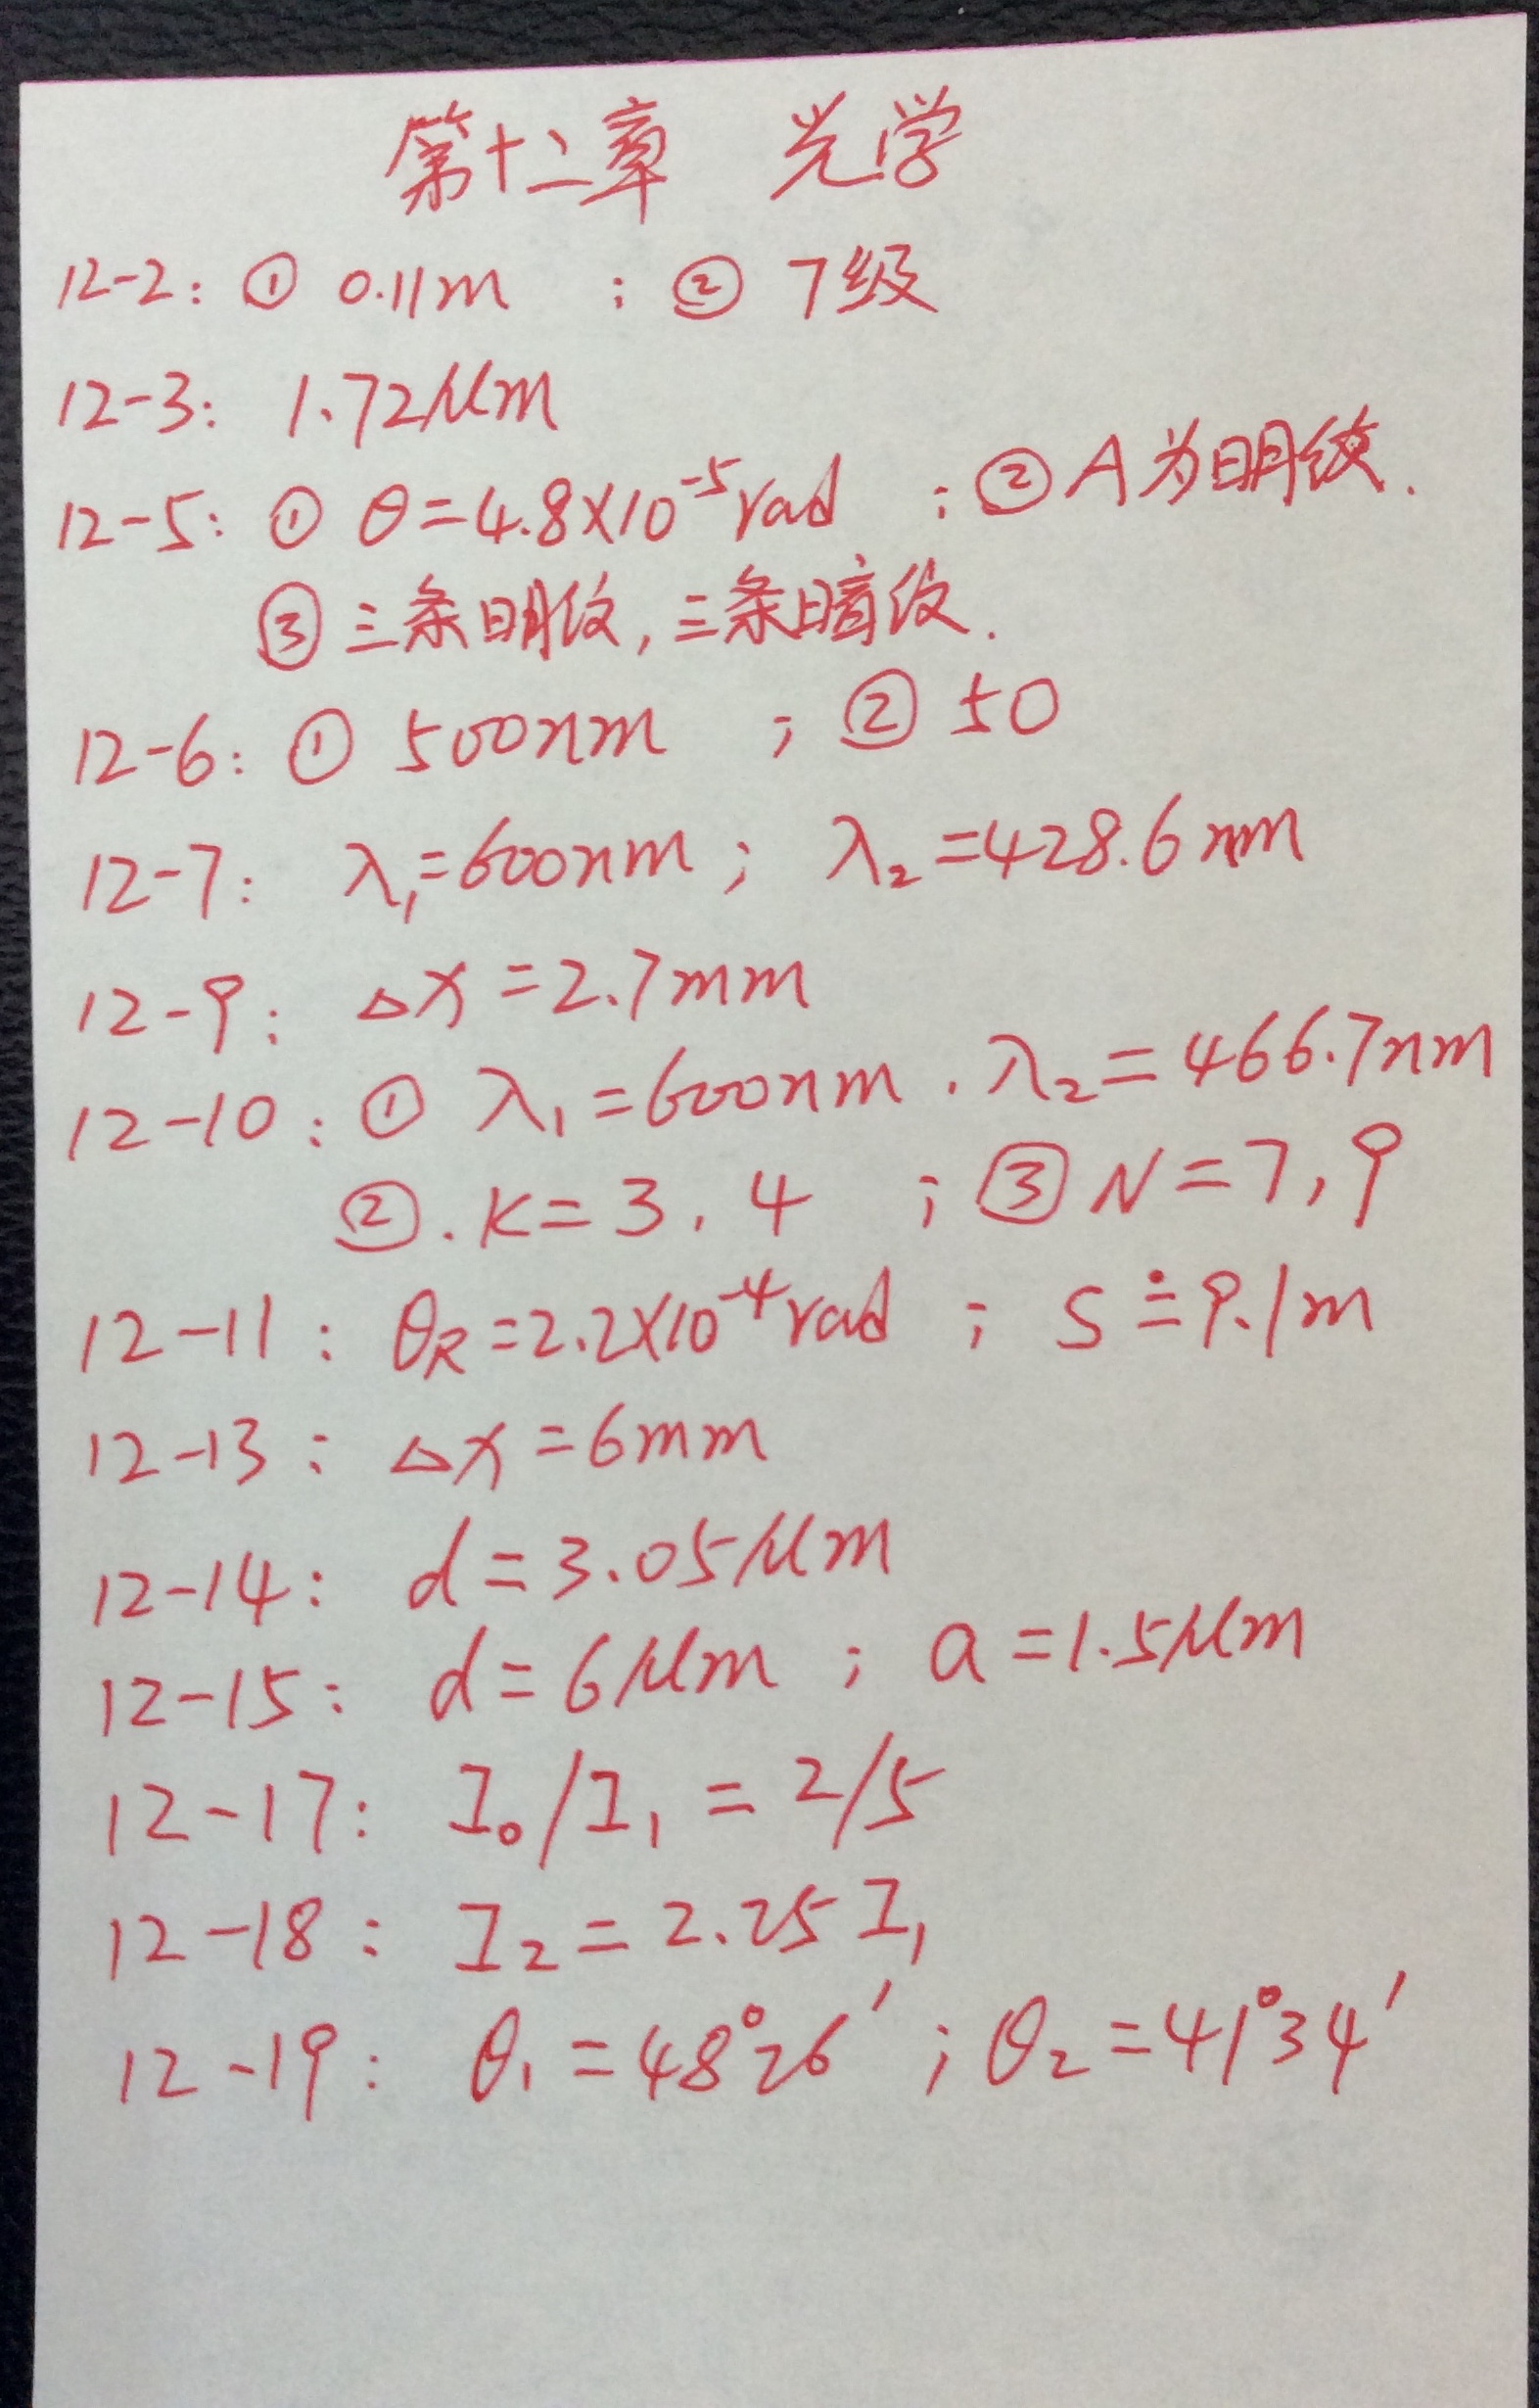 第十二章 光学
12-2: ① 0.11m ; ② 7级
12-3: 1.72μm
12-5: ① θ=4.8×10⁻⁵rad ; ② A为明纹.
③ 三条明纹, 三条暗纹.
12-6: ① 500nm ; ② 50
12-7: λ₁=600nm; λ₂=428.6nm
12-9: △x=2.7mm
12-10: ① λ₁=600nm. λ₂=466.7nm
②. K=3, 4 ; ③ N=7, 9
12-11: θR=2.2×10⁻⁴rad ; S≐9.1m
12-13: △x=6mm
12-14: d=3.05μm
12-15: d=6μm ; a=1.5μm
12-17: I₀/I₁=2/5
12-18: I₂=2.25I₁
12-19: θ₁=48°26′; θ₂=41°34′